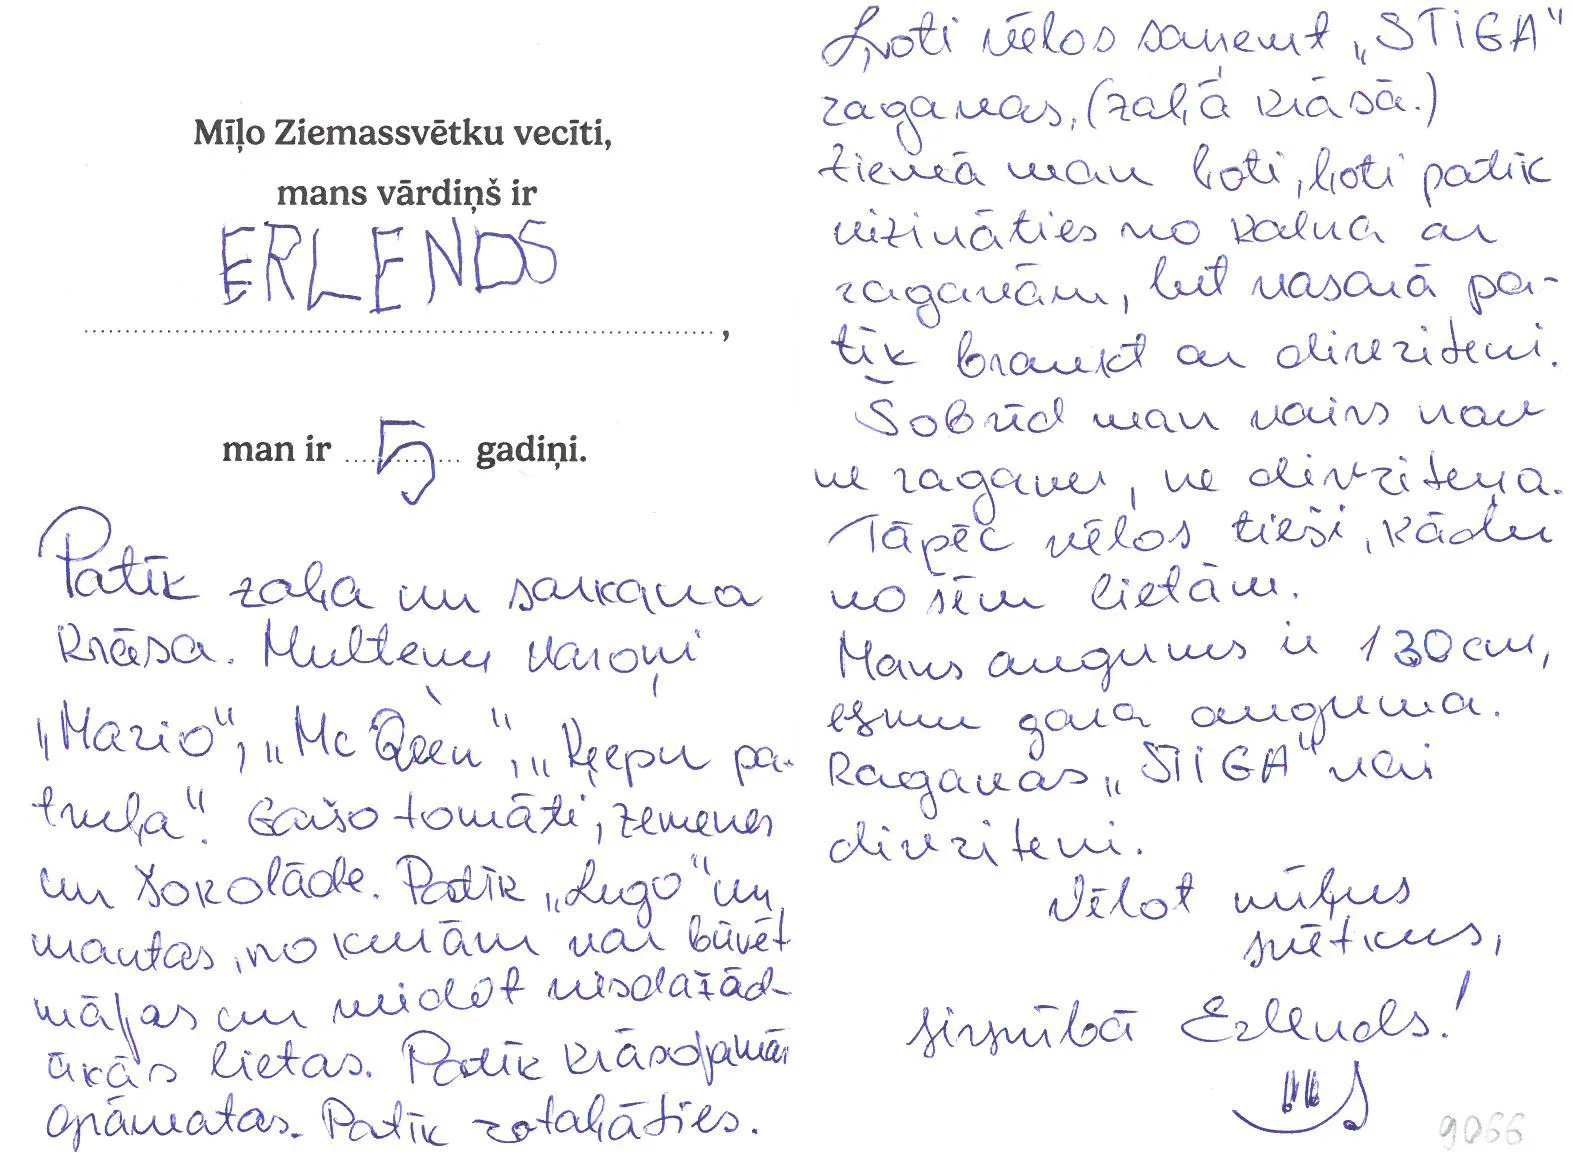 Mīļo Ziemassvētku vecīti,
mans vārdiņš ir
ERLENDS
,
man ir 5 gadiņi.
Patīk zaļa un sarkana
krāsa. Multeņu varoņi
„Mario“, „Mc Qeen“, „Ķepu pa-
truļa“. Gaišo tomāti, zemenes
un šokolāde. Patīk „Lego“ un
mantas, no kurām var būvēt
mājas un veidot visdažād-
ākās lietas. Patīk krāsojamās
grāmatas. Patīk rotaļāties.
Ļoti vēlos saņemt „STIGA“
ragavas, (zaļā krāsā.)
Ziemā man ļoti, ļoti patīk
vizināties no kalna ar
ragavām, bet vasarā pa-
tīk braukt ar divriteni.
Šobrīd man vairs nav
ne ragavu, ne divriteņa.
Tāpēc vēlos tieši, kādu
no šīm lietām.
Mans augums ir 130 cm,
esmu gara auguma.
Ragavas „STIGA“ vai
divriteni.
Vēlot mīļus
svētkus,
sirsnībā Erlends!
9066